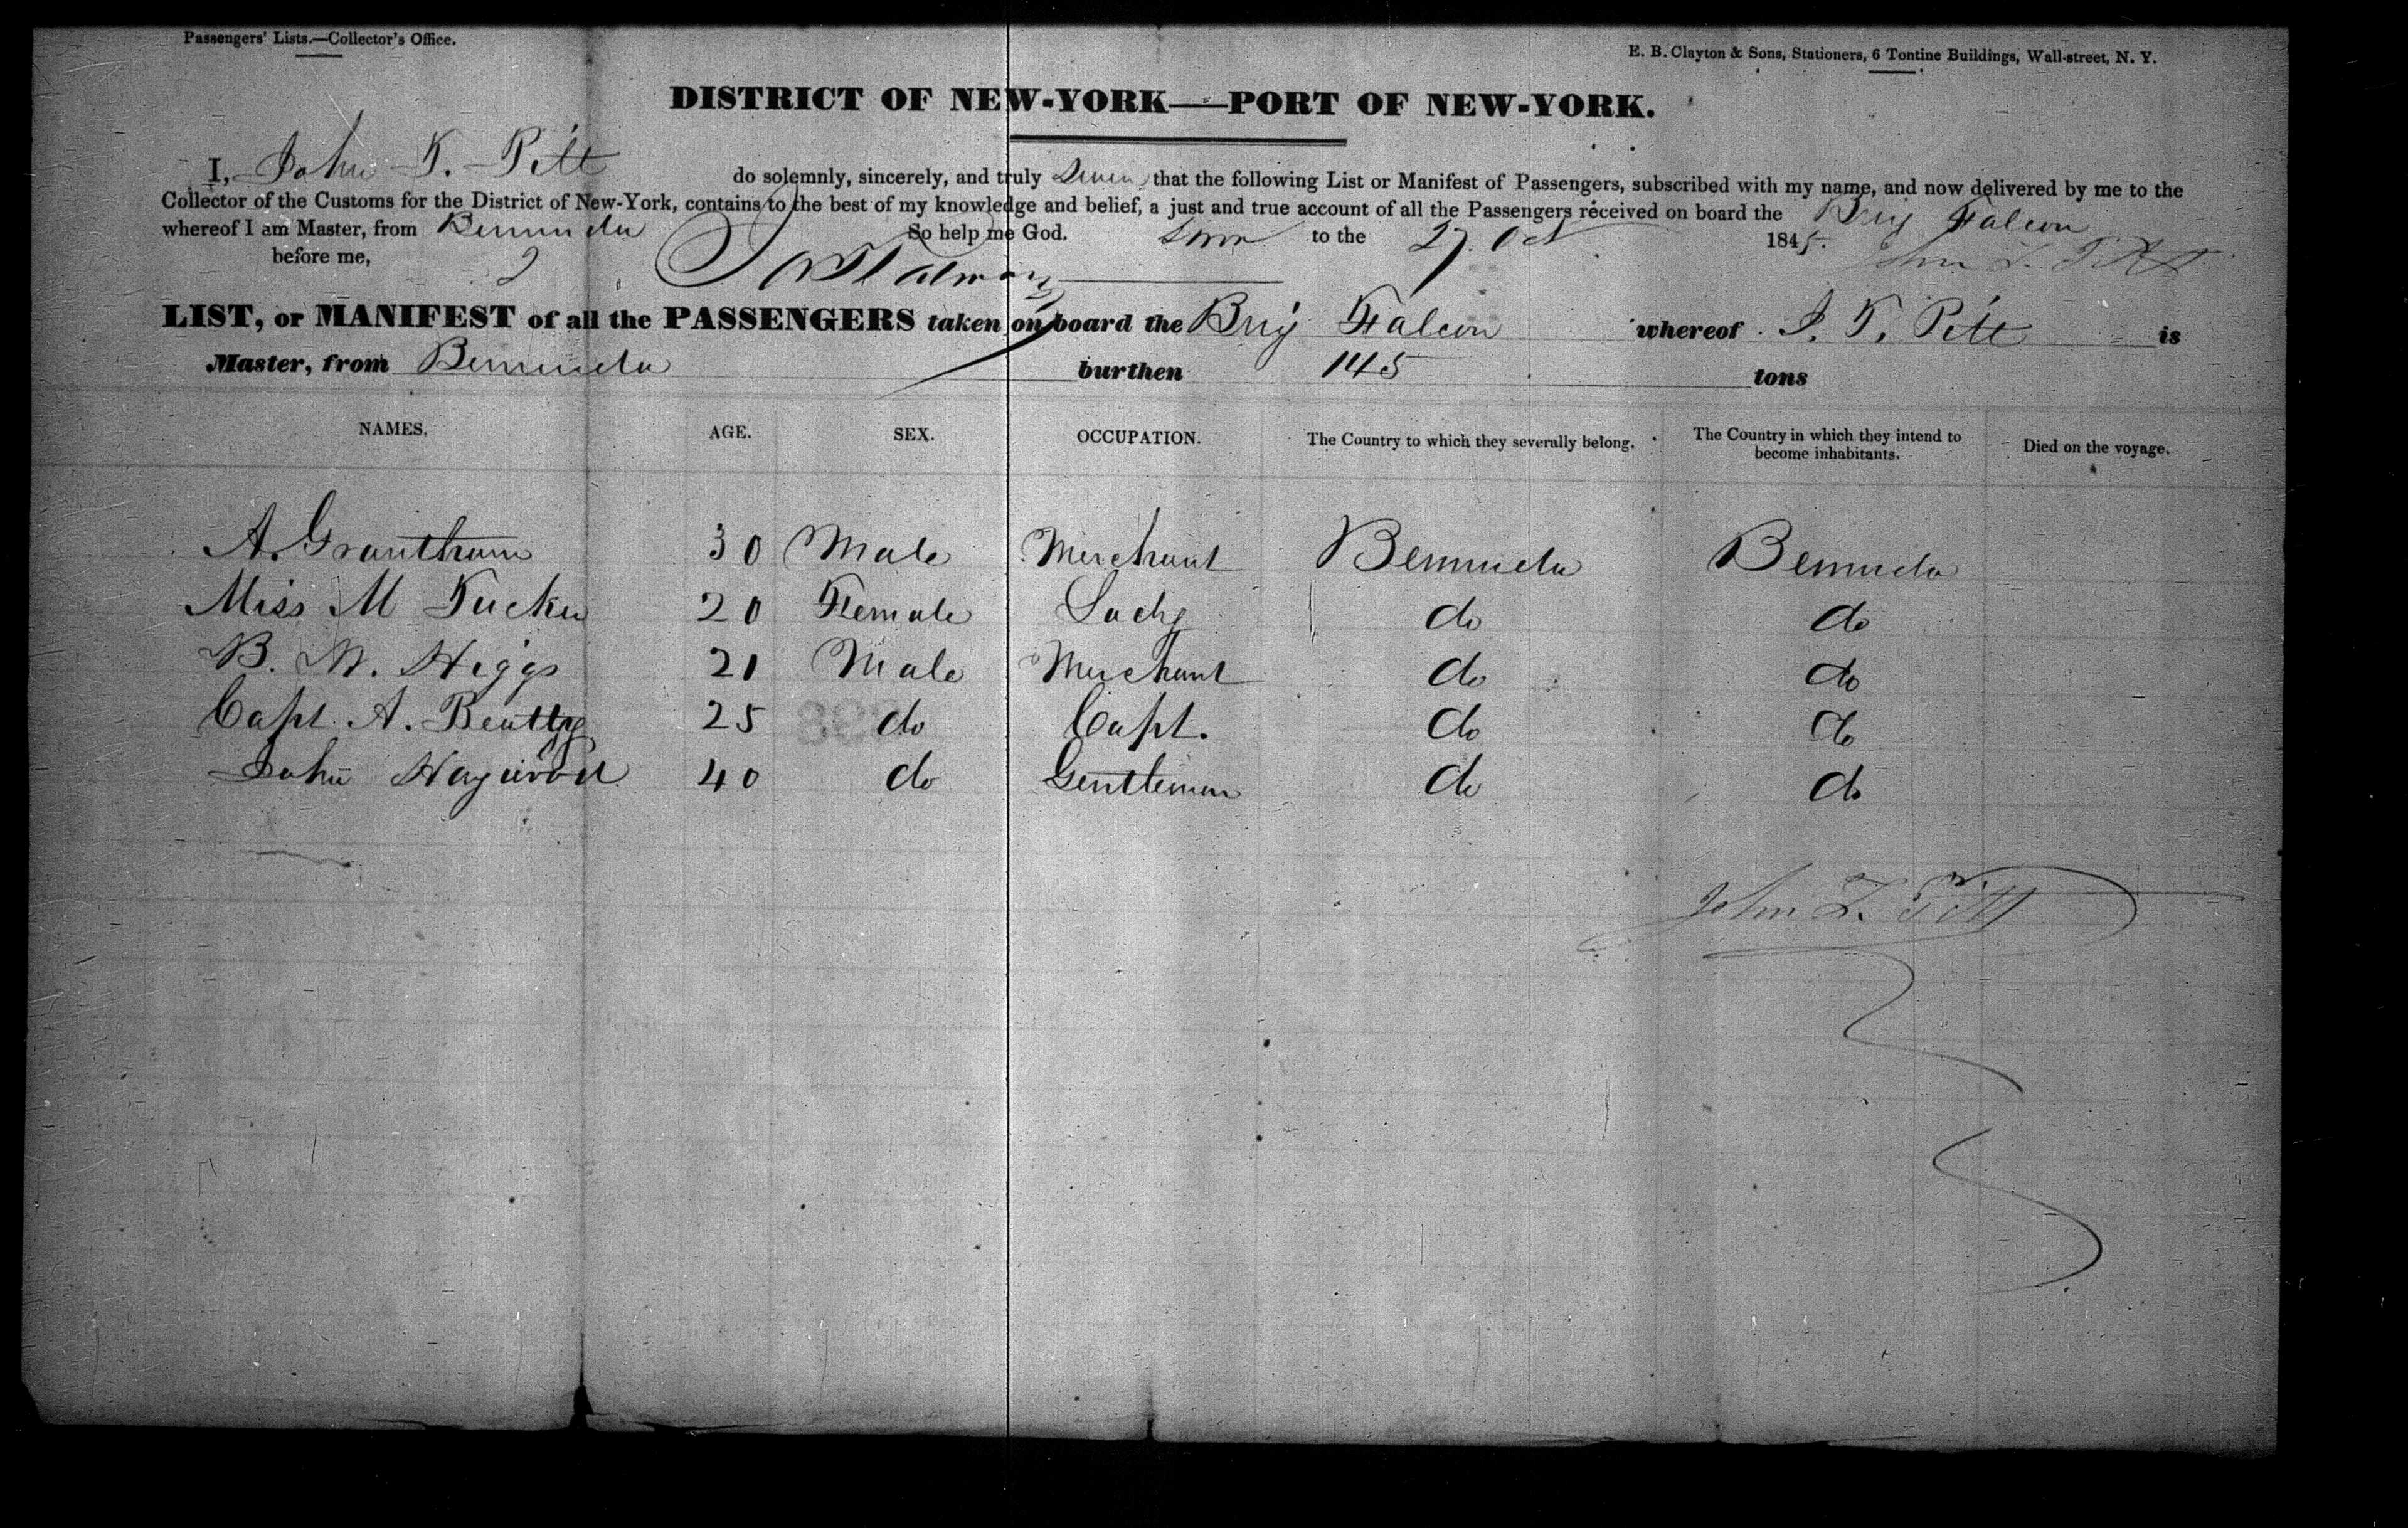 Passengers' Lists.—Collector's Office.
E. B. Clayton & Sons, Stationers, 6 Tontine Buildings, Wall-street, N. Y.
DISTRICT OF NEW-YORK—PORT OF NEW-YORK.
I, John T. Pitt do solemnly, sincerely, and truly Swear that the following List or Manifest of Passengers, subscribed with my name, and now delivered by me to the
Collector of the Customs for the District of New-York, contains to the best of my knowledge and belief, a just and true account of all the Passengers received on board the Brig Falcon
whereof I am Master, from Bermuda So help me God. Sworn to the 27 Oct 1845.
before me, John T. Pitt
LIST, or MANIFEST of all the PASSENGERS taken on board the Brig Falcon whereof J. T. Pitt is
Master, from Bermuda burthen 145 tons
NAMES. AGE. SEX. OCCUPATION. The Country to which they severally belong. The Country in which they intend to become inhabitants. Died on the voyage.
A. Grantham 30 Male Merchant Bermuda Bermuda
Miss M Tucker 20 Female Lady do do
B. W. Higgs 21 Male Merchant do do
Capt. A. Beatty 25 do Capt. do do
John Haywood 40 do Gentleman do do
John T. Pitt